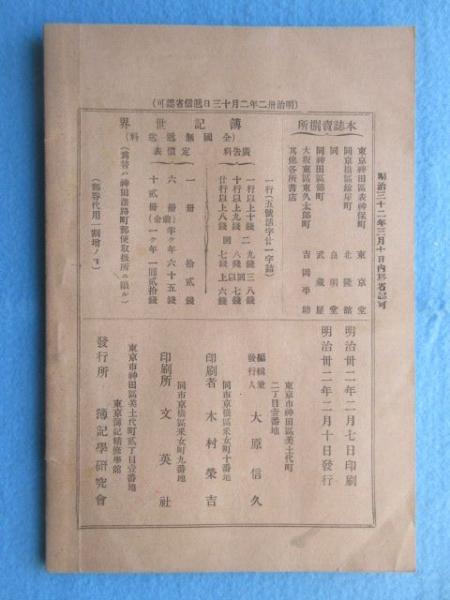 (明治卅二年二月十三日遞信省認可)
明治三十二年三月十日內務省認可
本誌賣捌所
東京神田區表神保町 東京堂
同京橋區鎗屋町 北隆館
同 良明堂
同神田區錦町 武藏屋
大坂東區東久太郎町 吉岡平助
其他各所書店
簿記世界
(全國無遞送料)
定價表
廣告料
一行(五號活字廿一字詰)
一行以上十錢
十行以上九錢
廿行以上八錢
一冊 拾貳錢
六冊(前金)半ケ年 六十五錢
十貳冊(前金)一ケ年 一圓貳拾錢
(爲替ハ神田淡路町郵便取扱所ニ限ル)
(郵券代用一割增ノヿ)
明治卅二年二月七日印刷
明治卅二年二月十日發行
東京市神田區美土代町
二丁目壹番地
編輯兼發行人 大原信久
同市京橋區釆女町十番地
印刷者 木村榮吉
同市京橋區釆女町九番地
印刷所 文英社
東京市神田區美土代町貳丁目壹番地
東京簿記精修學館
發行所 簿記學研究會